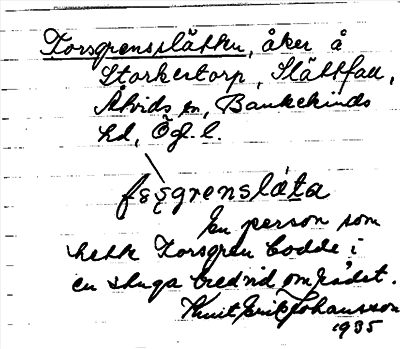 Torsgrensslätten, åker å
Storkertorp, Slättfall,
Åtvids sn, Bankekinds
hd, Ögl. l.
en person som
hette Torsgren bodde i
en stuga bredvid området.
Knut Erik Johansson
1935